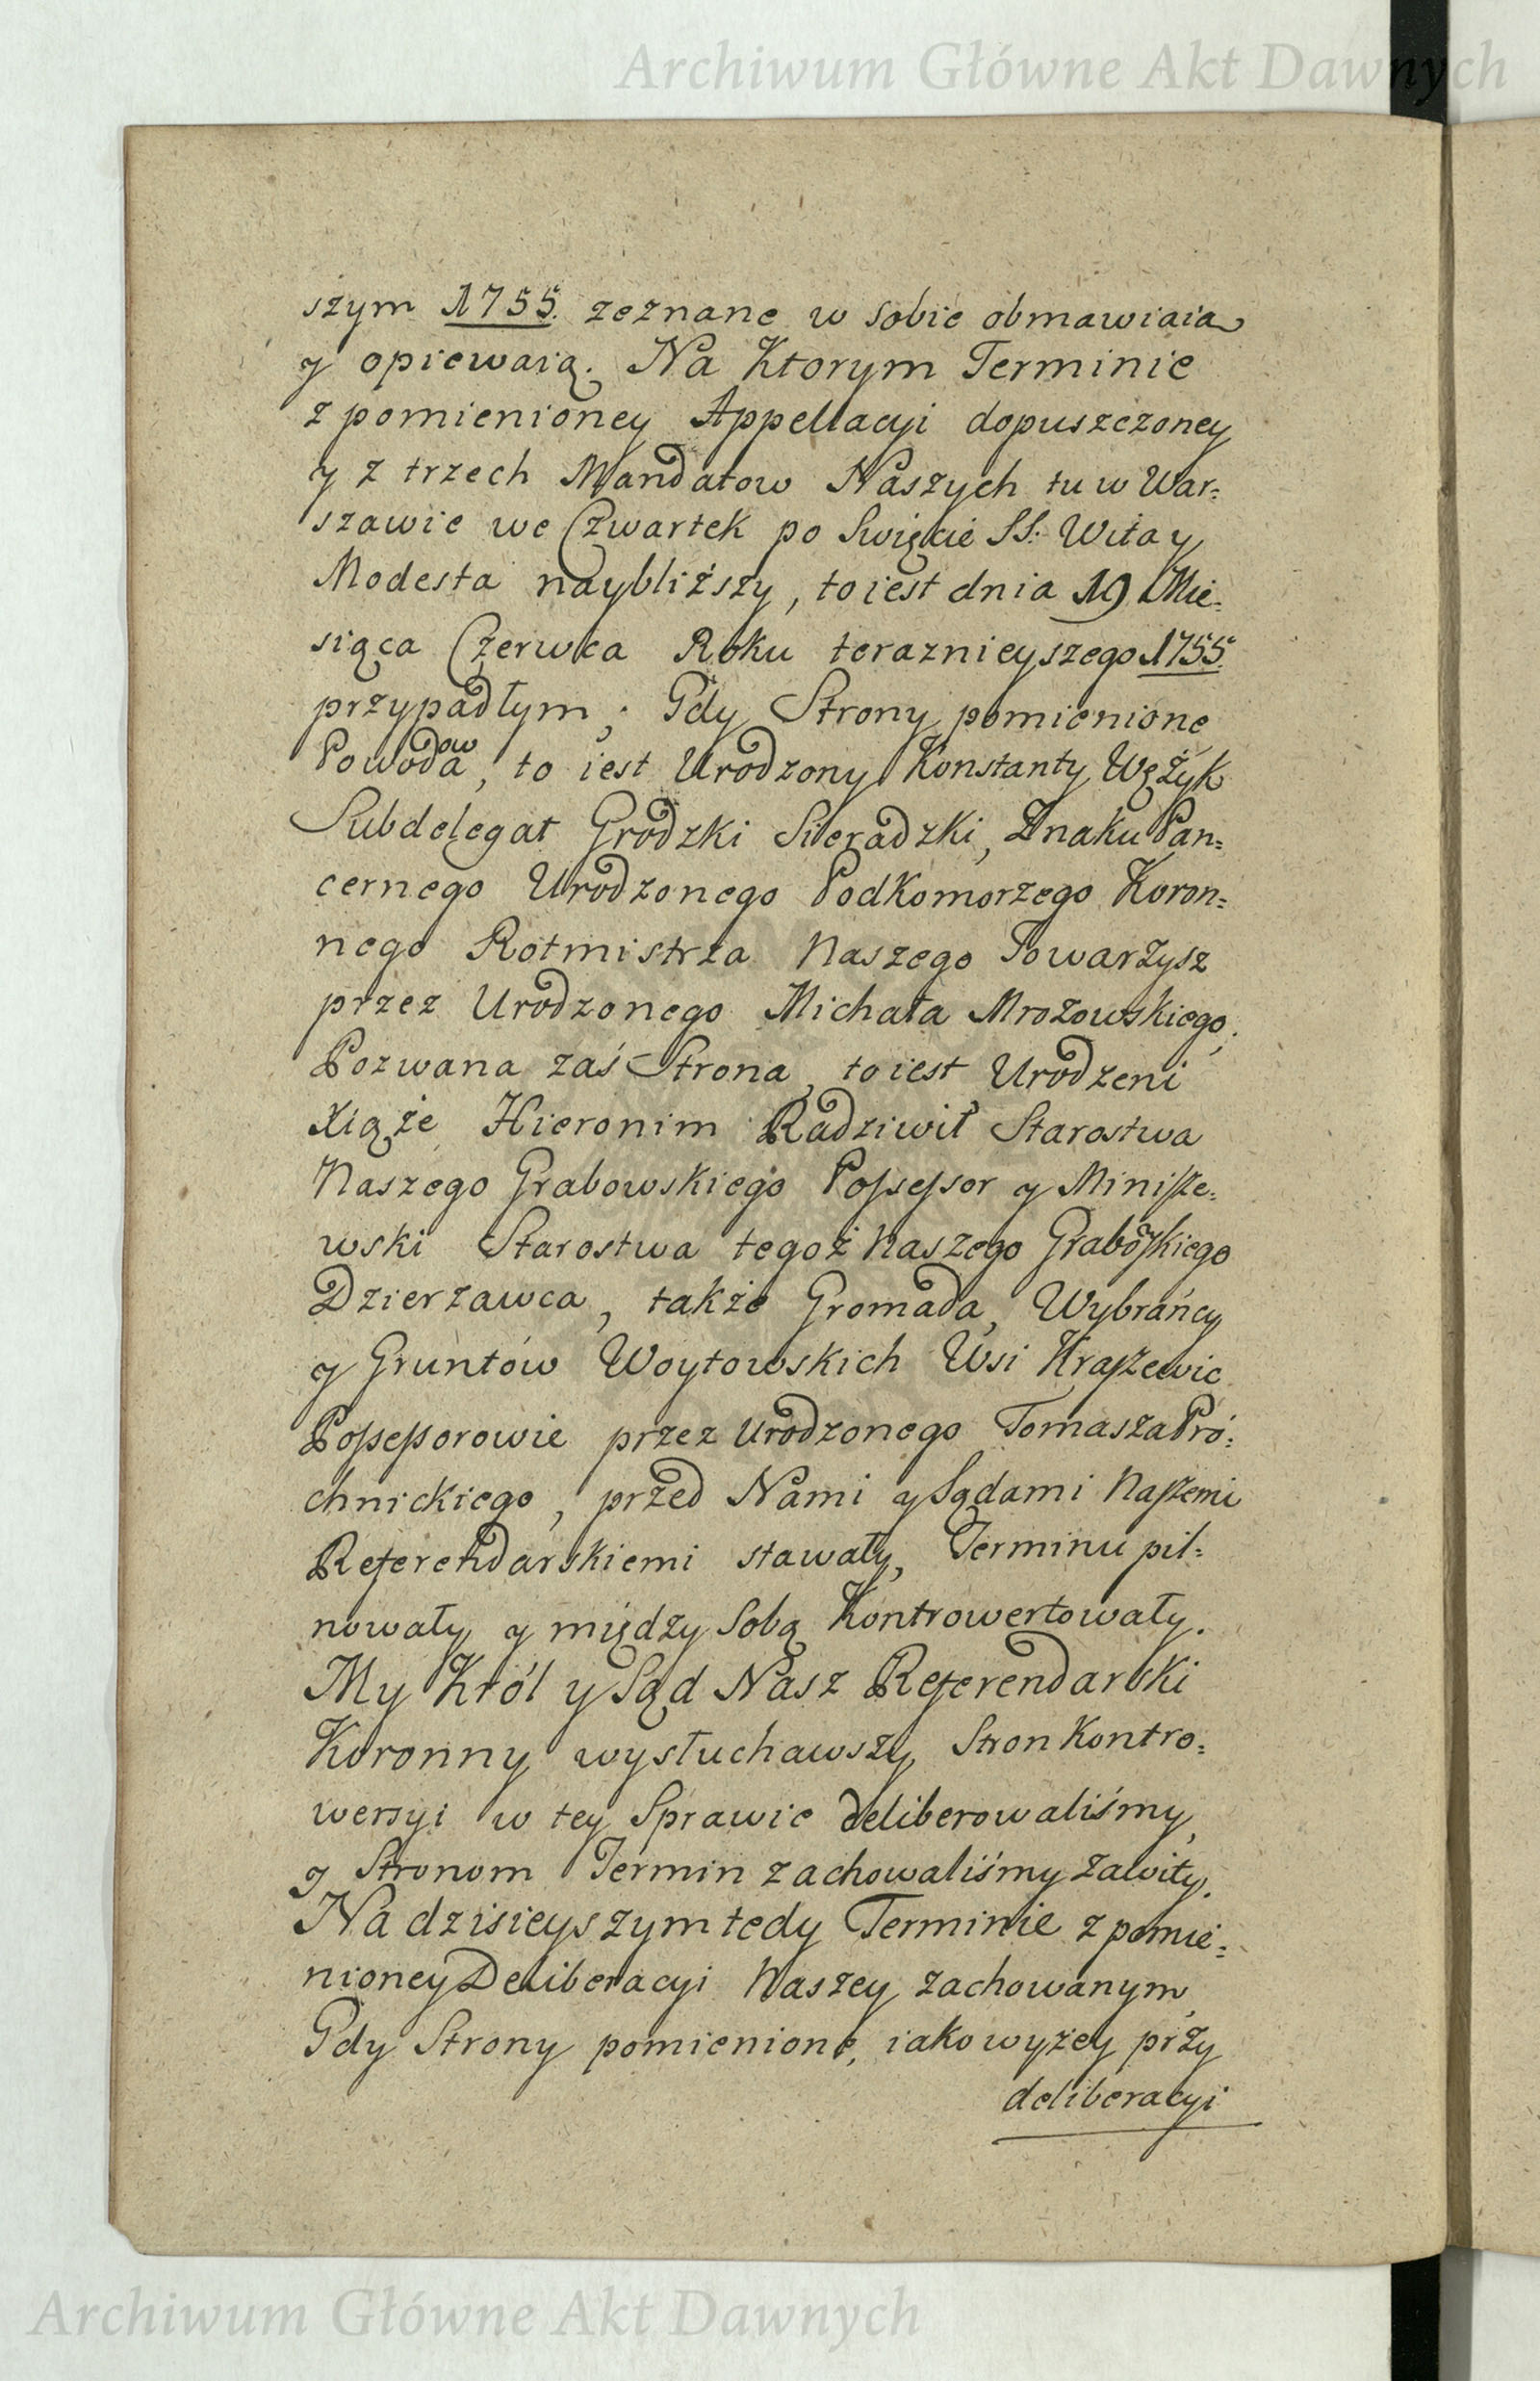 Archiwum Główne Akt Dawnych
szym 1755. zeznane w sobie obmawiaią
y opiewaią. Na Ktorym Terminie
z pomienioney Appellacyi dopuszczoney
y z trzech Mandatow Naszych tu w War=
szawie we Czwartek po Swięcie SS: Wita y
Modesta naybliższy, to iest dnia 19 Mie=
siąca Czerwca Roku teraznieyszego 1755.
przypadłym; Gdy Strony pomienione
Powodowa, to iest Urodzony Konstanty Wężyk
Subdelegat Grodzki Sieradzki, Znaku Pan=
cernego Urodzonego Podkomorzego Koron=
nego Rotmistrza Naszego Towarzysz
przez Urodzonego Michała Mrozowskiego,
Pozwana zaś Strona, to iest Urodzeni
Xiąże Hieronim Radziwił Starostwa
Naszego Grabowskiego Possessor y Minisze=
wski Starostwa tegoż Naszego Grabowskiego
Dzierzawca, także Gromada, Wybrańcy
y Gruntów Woytowskich Wsi Kraszewic
Possessorowie przez Urodzonego Tomasza Pró=
chnickiego, przed Nami y Sądami Naszemi
Referendarskiemi stawały, Terminu pil=
nowały y między sobą Kontrowertowały.
My Król y Sąd Nasz Referendarski
Koronny wysłuchawszy Stron Kontro=
wersyi w tey Sprawie deliberowaliśmy,
y Stronom Termin zachowaliśmy zawity.
Na dzisieyszym tedy Terminie z pomie=
nioney Deliberacyi Naszey zachowanym,
Gdy Strony pomienione, iako wyżey przy
deliberacyi
Archiwum Główne Akt Dawnych